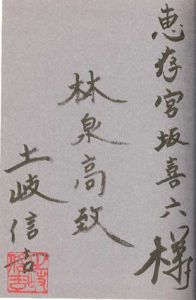 惠存宮坂喜六様
林泉高致
土岐信吉